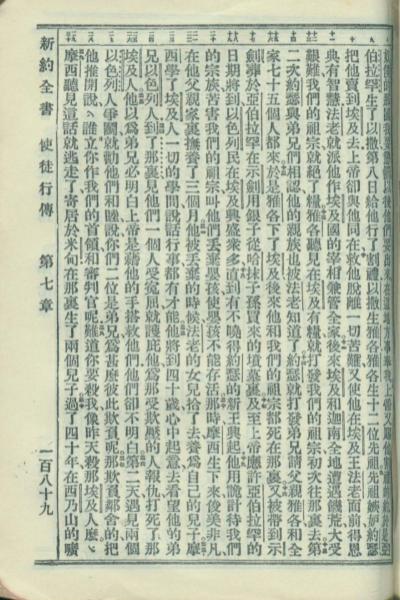 以後他們要出來在這地方事奉我上帝又
伯拉罕生了以撒第八日給他行了割禮以撒生雅各雅各生十二位先祖先祖嫉妒約瑟
把他賣到埃及去上帝卻與他同在救他脫離一切苦難又使他在埃及王法老面前得恩
典有智慧法老就派他作埃及國的宰相兼管全家後來埃及和迦南全地遭遇饑荒大受
艱難我們的祖宗就絕了糧雅各聽見在埃及有糧就打發我們的祖宗初次往那裏去第
二次約瑟與弟兄們相認他的親族也被法老知道了約瑟就打發弟兄請父親雅各和全
家七十五個人都來於是雅各下了埃及後來他和我們的祖宗都死在那裏又被帶到示
劍葬於亞伯拉罕在示劍用銀子從哈抹子孫買來的墳墓裏及至上帝應許亞伯拉罕的
日期將到以色列民在埃及興盛衆多直到有不曉得約瑟的新王興起他用詭計待我們
的宗族苦害我們的祖宗叫他們丟棄嬰孩使嬰孩不能存活那時摩西生下來俊美非凡
在他父親家裏撫養了三個月他被丟棄的時候法老的女兒拾了去養爲自己的兒子摩
西學了埃及人一切的學問說話行事都有才能他將到四十歲心中起意去看望他的弟
兄以色列人到了那裏見他們一個人受寃屈就護庇他爲那受欺壓的人報仇打死了那
埃及人他以爲弟兄必明白上帝是藉他的手搭救他們他們卻不明白第二天遇見兩個
以色列人爭鬭就勸他們和睦說你們二位是弟兄爲甚麼彼此欺負呢那欺負鄰舍的把
他推開說誰立你作我們的首領和審判官呢難道你要殺我像昨天殺那埃及人麼
摩西聽見這話就逃走了寄居於米甸在那裏生了兩個兒子過了四十年在西乃山的曠
新約全書 使徒行傳 第七章 一百八十九